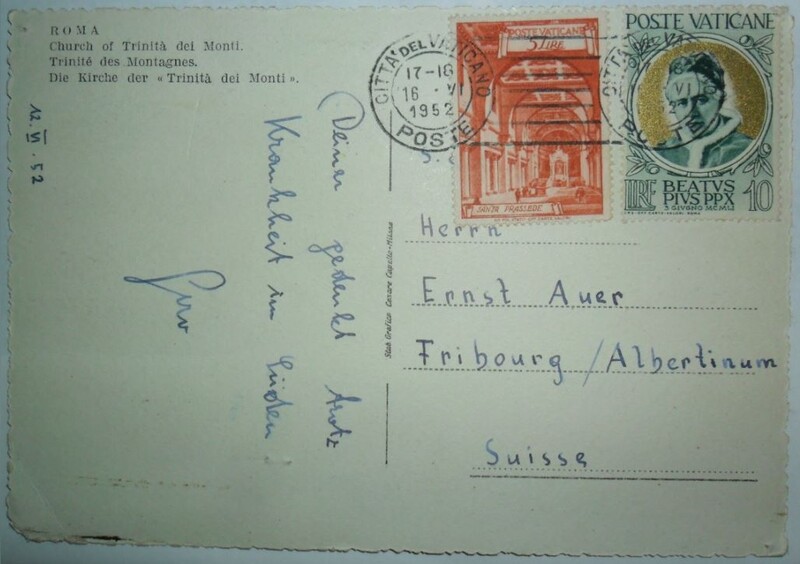 ROMA
Church of Trinità dei Monti.
Trinité des Montagnes.
Die Kirche der « Trinità dei Monti ».
12. VI. 52
Deiner gedenkt trotz
Krankheit im Süden
CITTA' DEL VATICANO
17-18
16 · VI
1952
POSTE
POSTE VATICANE
5 LIRE
SANTA PRASSEDE
POSTE VATICANE
LIRE
BEATVS
PIVS PP X
3 GIVGNO MCMLI
10
Herrn
Ernst Auer
Fribourg / Albertinum
Suisse
Stab. Grafico Cesare Capello-Milano